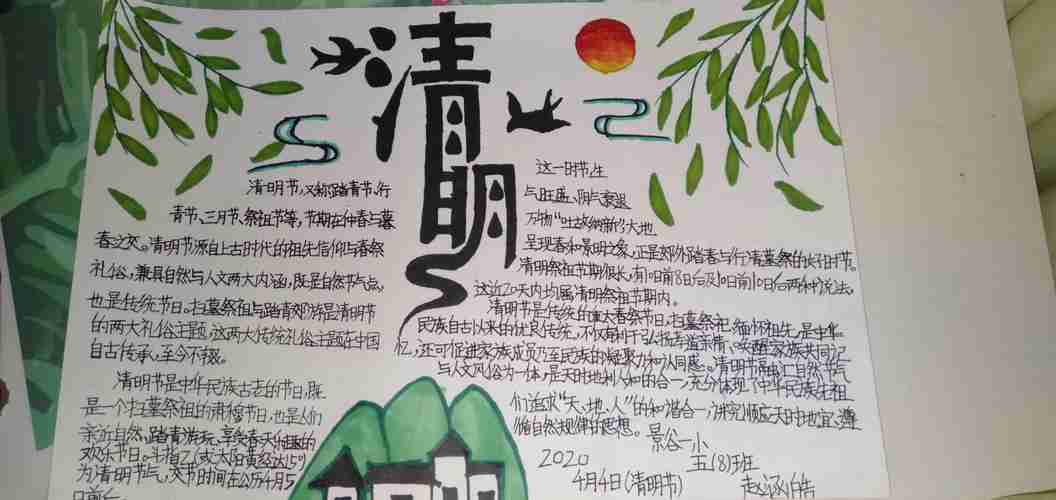 清明
清明节,又称踏青节、行
青节、三月节、祭祖节等,节期在仲春与暮
春之交。清明节源自上古时代的祖先信仰与春祭
礼俗,兼具自然与人文两大内涵,既是自然节气点,
也是传统节日。扫墓祭祖与踏青郊游是清明节
的两大礼俗主题,这两大传统礼俗主题在中国
自古传承,至今不辍。
清明节是中华民族古老的节日,既
是一个扫墓祭祖的肃穆节日,也是人们
亲近自然、踏青游玩、享受春天乐趣的
欢乐节日。斗指乙(或太阳黄经达15°)
为清明节气,交节时间在公历4月5
日前后
这一时节,生
与旺盛、阴气衰退
万物“吐故纳新”,大地
呈现春和景明之象,正是郊外踏春与行清墓祭的好时节。
清明祭祖节期很长,有10日前8日后及10日前10日后两种说法,
这近20天内均属清明祭祖节期内。
清明节是传统的重大春祭节日,扫墓祭祀、缅怀祖先,是中华
民族自古以来的优良传统,不仅有利于弘扬孝道亲情、唤醒家族共同记
忆,还可促进家族成员乃至民族的凝聚力和认同感。清明节融汇自然节气
与人文风俗为一体,是天时地利人和的合一,充分体现了中华民族先祖
们追求“天、地、人”的和谐合一,讲究顺应天时地宜、遵
循自然规律的思想。
景谷一小
2020
五(8)班
4月4日(清明节)
赵涵皓